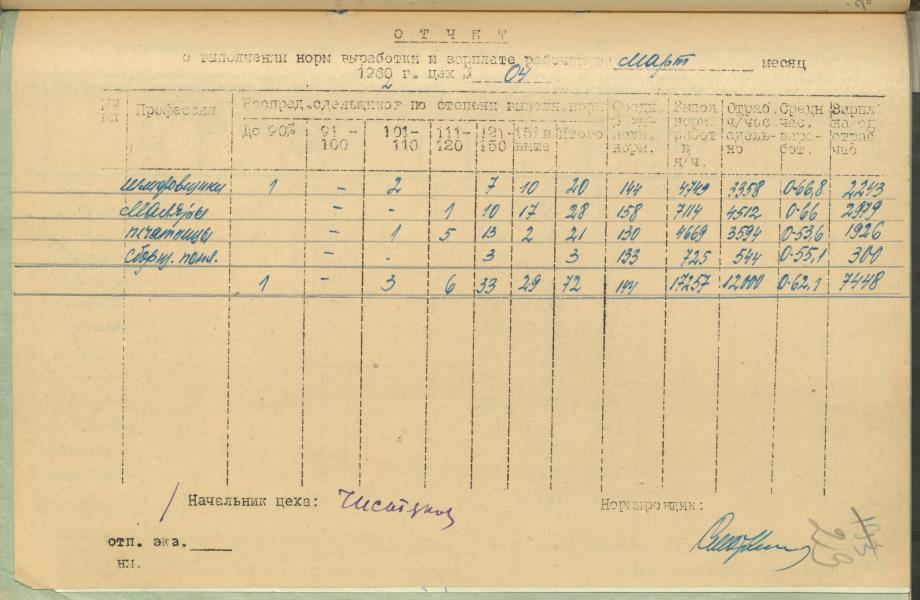 ОТЧЕТ
о выполнении норм выработки и зарплате рабочих за Март месяц
1960 г. цех № 04
2
№№ пп Профессии Распред. сдельщиков по степени выполн. норм Средн % вып. норм. Выпол норм. работ в н/ч. Отраб ч/час. сдельно Средн час. зара- бот. Зарпл на сд отраб час
До 90% 91-100 101-110 111-120 121-150 151 и выше Итого
шлифовщики 1 - 2 7 10 20 144 4749 3358 0-66,8 2243
Маляры - - 1 10 17 28 158 7114 4512 0-66 2979
печатницы - 1 5 13 2 21 130 4669 3594 0-53,6 1926
сборщ. - - 3 3 133 725 544 0-55,1 300
1 - 3 6 33 29 72 144 17257 12000 0-62,1 7448
Начальник цеха:
Нормировщик:
отп. экз.
нм.
193
23